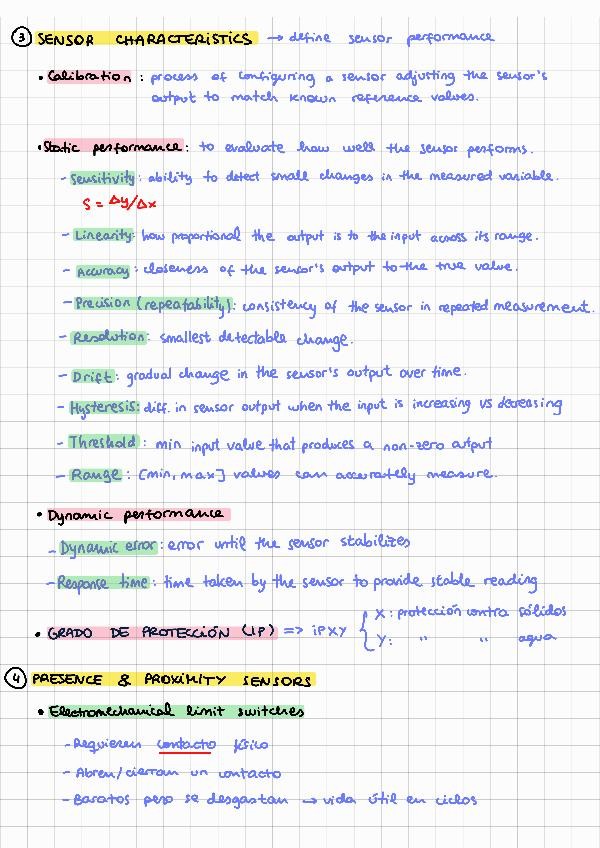 ③ SENSOR CHARACTERISTICS → define sensor performance
• Calibration : process of configuring a sensor adjusting the sensor's
output to match known reference values.
• Static performance : to evaluate how well the sensor performs.
- Sensitivity : ability to detect small changes in the measured variable.
S = Δy/Δx
- Linearity: how proportional the output is to the input across its range.
- Accuracy : closeness of the sensor's output to the true value.
- Precision (repeatability): consistency of the sensor in repeated measurement.
- Resolution : smallest detectable change.
- Drift : gradual change in the sensor's output over time.
- Hysteresis: diff. in sensor output when the input is increasing vs decreasing
- Threshold : min input value that produces a non-zero output
- Range : [min, max] values can accurately measure.
• Dynamic performance
- Dynamic error : error until the sensor stabilizes
- Response time : time taken by the sensor to provide stable reading
• GRADO DE PROTECCIÓN (IP) => iPXY { X : protección contra sólidos
Y: " " agua
④ PRESENCE & PROXIMITY SENSORS
• Electromechanical limit switches
- Requieren contacto físico
- Abren/cierran un contacto
- Baratos pero se desgastan → vida útil en ciclos